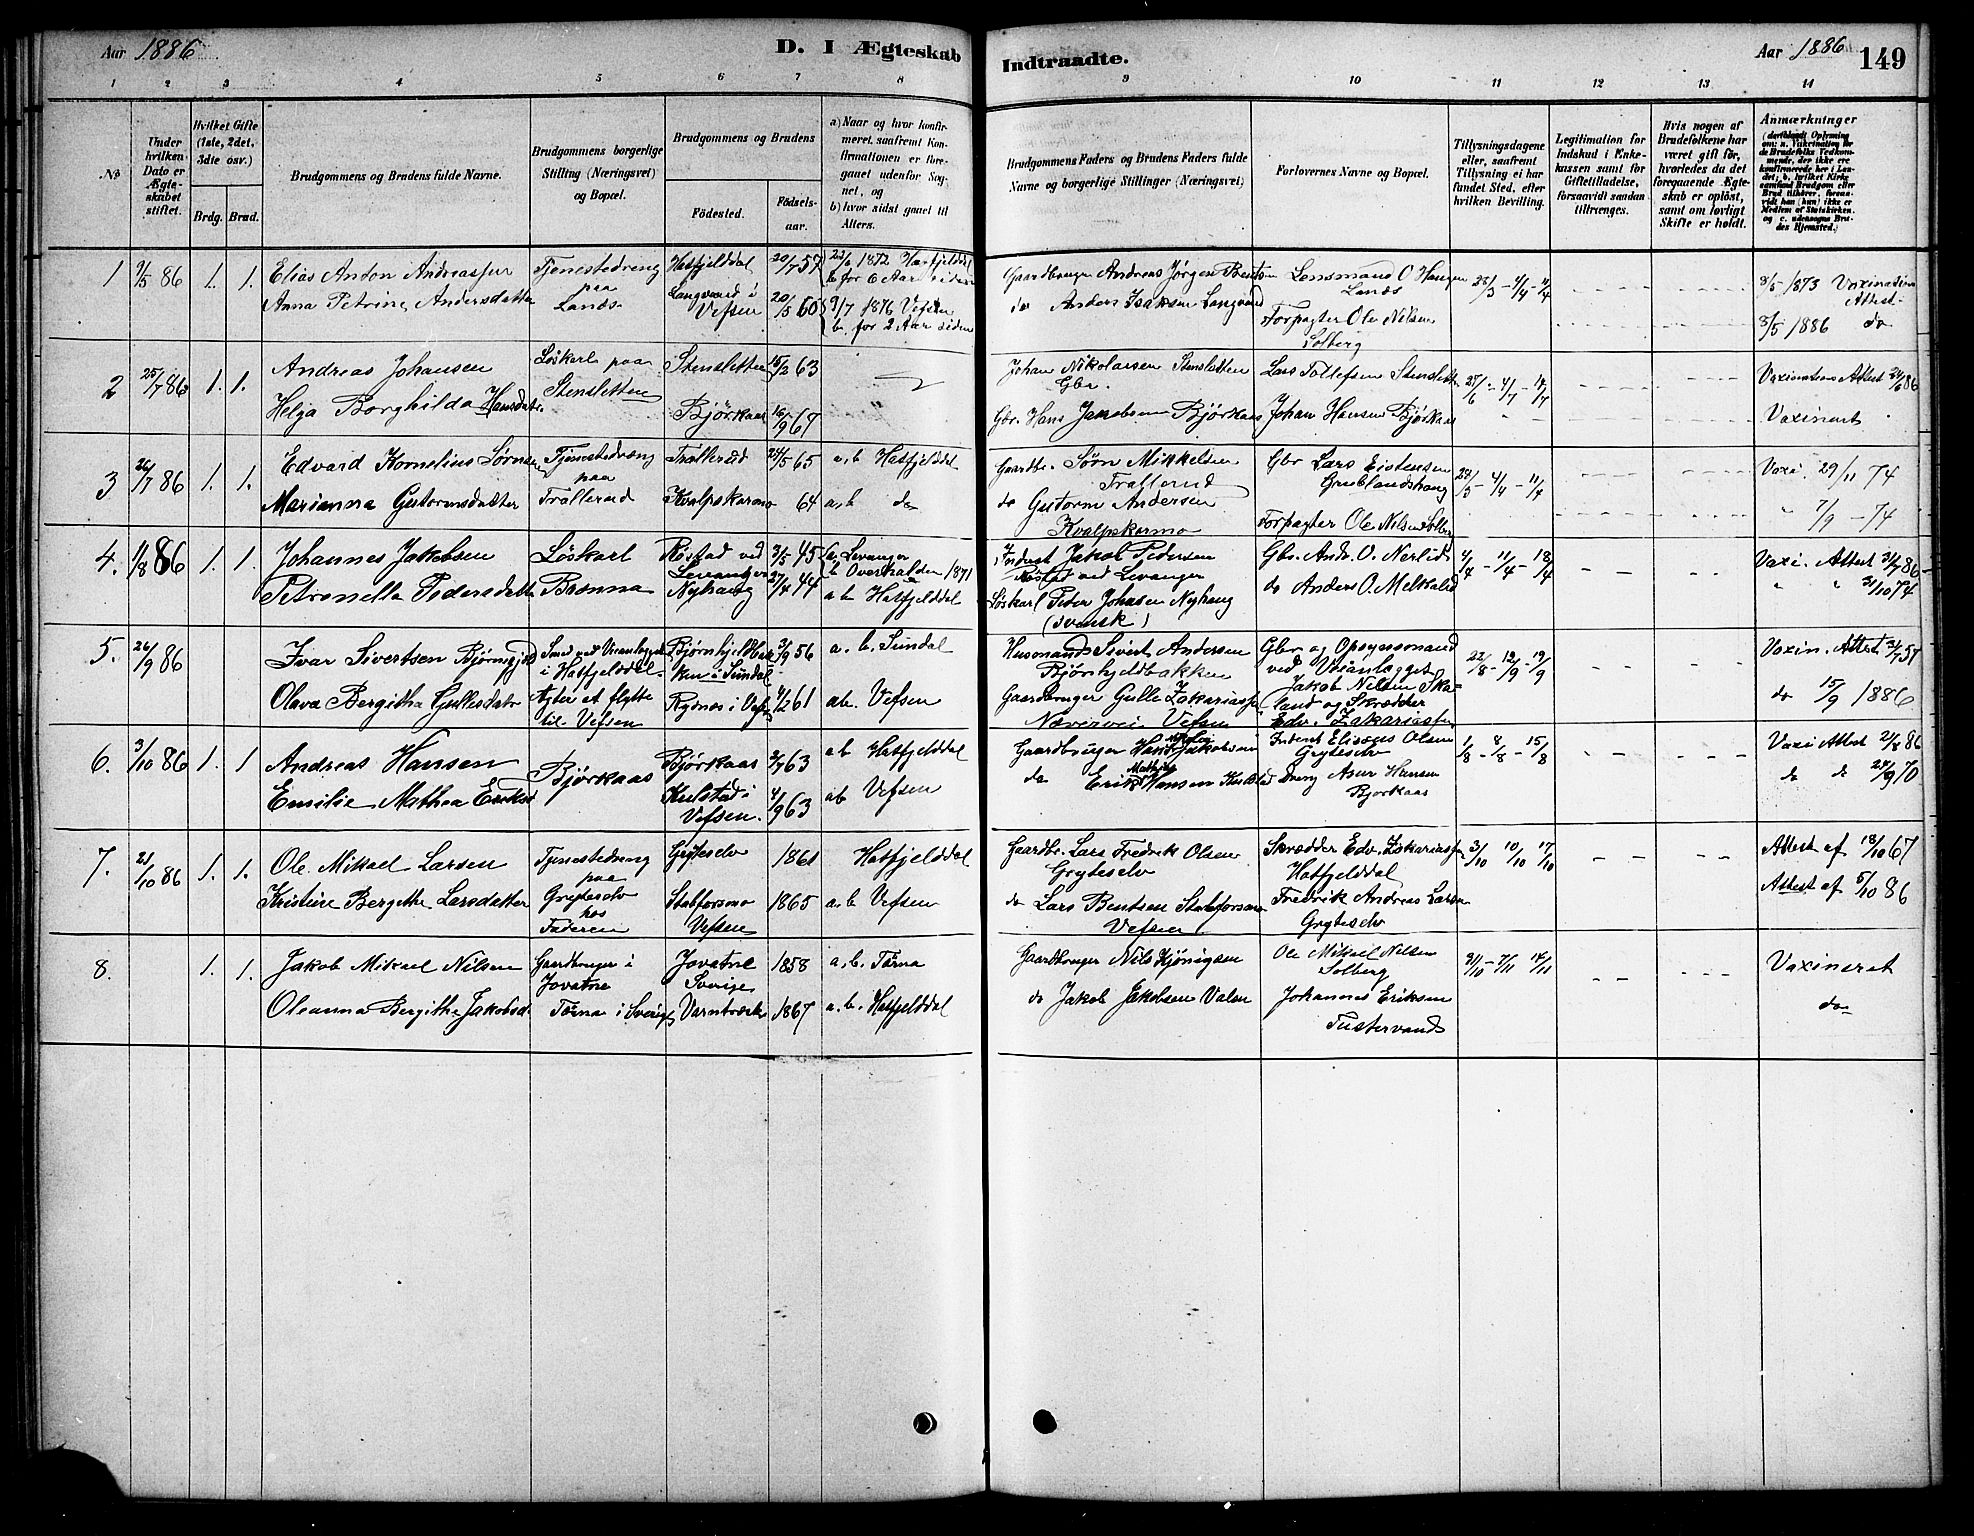 Aar 1886
D. I Ægteskab
Indtraadte.
Aar 1886
149
1 2 3 4 5 6 7 8 9 10 11 12 13 14
No
Under hvilken Dato er Ægteskabet stiftet.
Hvilket Gifte (1ste, 2det, 3die osv.)
Brdg. Brud.
Brudgommens og Brudens fulde Navne.
Brudgommens borgerlige Stilling (Næringsvei) og Bopæl.
Brudgommens og Brudens
Fødested.
Fødselsaar.
a) Naar og hvor konfirmeret, saafremt Konfirmationen er foregaaet udenfor Sognet, og
b) hvor sidst gaaet til Alters.
Brudgommens Faders og Brudens Faders fulde Navne og borgerlige Stillinger (Næringsvei)
Forlovernes Navne og Bopæl.
Tillysningsdagene eller, saafremt Tillysning ei har fundet Sted, efter hvilken Bevilling.
Legitimation for Indskud i Enkekassen samt for Giftetilladelse, forsaavidt saadan tiltrænges.
Hvis nogen af Brudefolkene har været gift før, hvorledes da det foregaaende Ægteskab er opløst, samt om lovligt Skifte er holdt.
Anmærkninger
1 9/5 86 1. 1.
Elias Anton Andreassen
Anna Petrine Andersdatter
Tjenestedreng
paa
Lands-
Hatfjelddal 20/7 57
Langvand i
Vefsen 20/5 60
22/6 1872 Hatfjelddal
b. for 6 Aar siden
9/7 1876 Vefsen
b. for 2 Aar siden
Gaardbruger Andreas Jørgen Bentsen
do Anders Isaksen Langvand
Lensmand O Haugen
Lands
Forpagter Ole Nilsen
Solberg
28/3 - 4/4 - 11/4
8/5 1873 Vaxination
Attest-
3/5 1886 do
2 25/7 86 1. 1.
Andreas Johansen
Helga Borghilda Hansdatr.
Løskarl paa
Stensletten
Stensletten 15/2 63
Bjørkaas 16/9 67
Johan Nikolaisen Stensletten
Gbr.
Gbr. Hans Jakobsen Bjørkaas
Lars Tollefsen Stensletten
Johan Hansen Bjørkaas
27/6 - 4/7 - 11/7
Vaxinations Attest 24/6 86
Vaxineret
3 26/7 86 1. 1.
Edvard Kornelius Sørnsen
Marianna Gutormsdatter
Tjenestedreng
paa
Trallerud
Trallerud 24/5 65
Kvalpskarmo 64
a, b Hatfjelddal
a, b do
Gaardbr. Søn Mikkelsen
Trallerud
do Gutorm Andersen
Kvalpskarmo
Gbr Lars Eistensen
Grublandshaug
Forpagter Ole Nilsen Solberg
28/3 - 4/4 - 11/4
Vaxi. 29/11 74
" 7/9 - 74
4. 1/8 86 1. 1.
Johannes Jakobsen
Petronella Pedersdatter
Løskarl
Røstad ved
Levanger 3/5 45
Nyhaug 27/4 44
a. Levanger
b Overhalden 1871
a b Hatfjelddal
Inderst Jakob Pedersen
Røstad ved Levanger
Løskarl Peder Johnsen Nyhaug
(svensk)
Gbr. Andr. O. Nerlid
do Anders O. Melkalid
4/4 - 11/4 - 18/4
Vaxi. Attest 31/7 86
" " 31/10 74
5. 26/9 86
Ivar Sivertsen
Olava Bergitha Gullesdatr
i Hatfjelddal.
Agter at flytte
til Vefsen
ken i Sundal 3/9 56
Rynes i Vefsn 4/2 61
a. b. Sundal
ab. Vefsen
Husmand Sivert Andersen
Bjørnhjeldbakken
Gaardbruger Gulle Zakariassen
Vefsen
Gbr og Opsynsmand
ved Veianlægget
Jakob Nilsen Ska-
land og Skrædder
Edv. Zakariassen
22/8 - 12/9 - 19/9
Vaxin. Attest
do 15/9 1886
6. 3/10 86 1. 1
Andreas Hansen
Emilie Mathea Eriksd
Bjørkaas
Bjørkaas 2/7 63
Kulstad i
Vefsen. 4/9 63
ab Hatfjelddal
ab Vefsen
Gaardbruger Hans Jakobsen
do Erik Hansen Kulstad
Inderst Elisæus Olsen
Gryteselv
Dreng Asur Hansen
Bjørkaas
1/8 - 8/8 - 15/8
Vaxi Attest 2/8 86
do do 24/9 70
7. 21/10 86 1. 1.
Ole Mikael Larsen
Kristine Bergithe Larsdatter
Tjenestedreng
paa
Gryteselv
hos
Faderen
Gryteselv 1861
Stabforsmo
Vefsen 1865
Hatfjelddal
a, b Vefsen
Gaardbr. Lars Fredrik Olsen
Gryteselv
do Lars Bentsen Stabforsmo
Vefsen
Skrædder Edv. Zakariassen
Hatfjelddal
Fredrik Andreas Larsen
Gryteselv
3/10 10/10 17/10
Attest af 18/10 67
Attest af 5/10 86
8. 1. 1.
Jakob Mikael Nilsen
Oleanna Bergithe Jakobsd.
Gaardbruger i
Jovatne
Tærna i Sverige
Jovatne
Sverige 1858
Varntræsk 1867
a, b. Tärna
a. b. Hatfjelddal
Gaardbruger Nils Kjønigsen
do Jakob Jakobsen Valen
Ole Mikael Nilsen
Solberg
Johannes Eriksen
Tustervand
31/10 - 7/11 14/11
Vaxineret
do